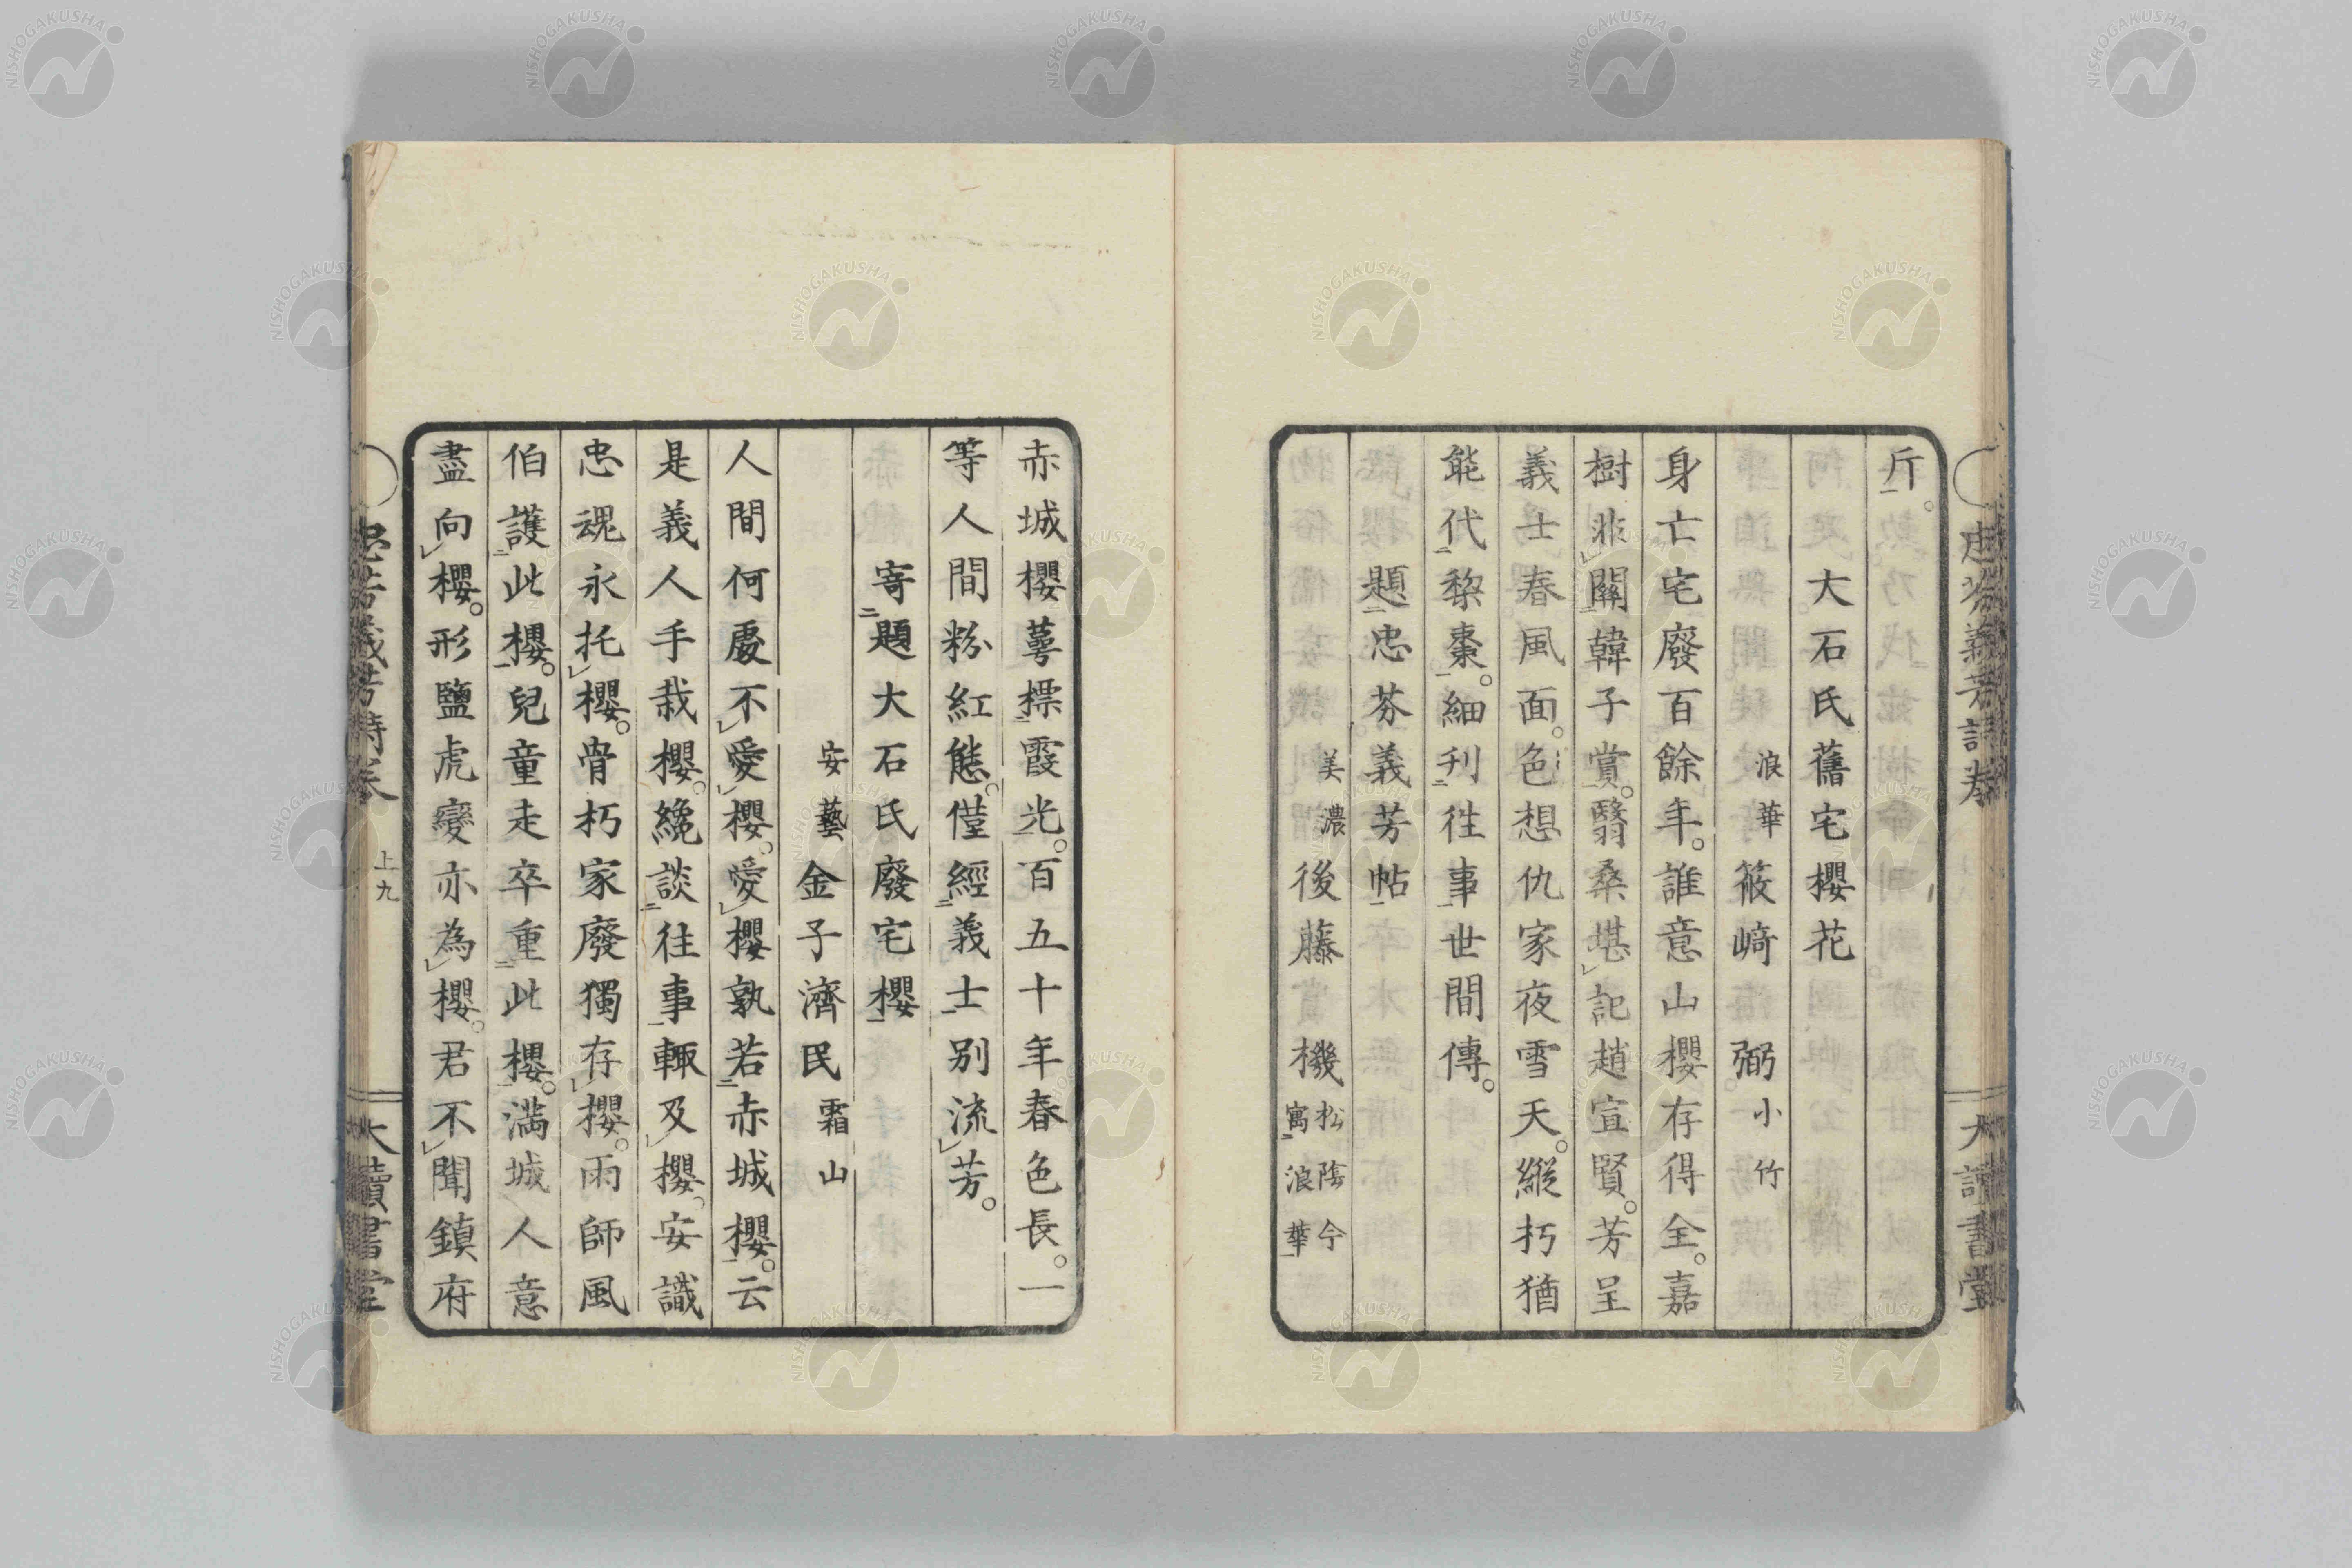 斤。
大石氏舊宅櫻花
浪華 筱崎 弼 小竹
身亡宅廢百餘年。誰意山櫻存得全。嘉
樹非關韓子賞。翳桑堪記趙宣賢。芳呈
義士春風面。色想仇家夜雪天。縱朽猶
能代棃棗。細刊徃事世間傳。
題忠芬義芳帖
美濃 後藤 機 松陰今寓浪華
赤城櫻萼標霞光。百五十年春色長。一
等人間粉紅態。僅經義士別流芳。
寄題大石氏廢宅櫻
安藝 金子濟民 霜山
人間何處不愛櫻。愛櫻孰若赤城櫻。云
是義人手栽櫻。纔談往事輒及櫻。安識
忠魂永托櫻。骨朽家廢獨存櫻。雨師風
伯護此櫻。兒童走卒重此櫻。滿城人意
盡向櫻。形鹽虎變亦為櫻。君不聞鎮府
忠芬義芳詩卷
上九
大讀書堂
忠芬義芳詩卷
大讀書堂
NISHOGAKUSHA